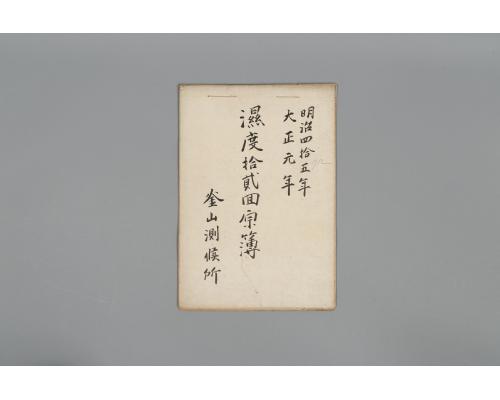 明治四拾五年
大正元年
濕度拾貳回原簿
釜山測候所